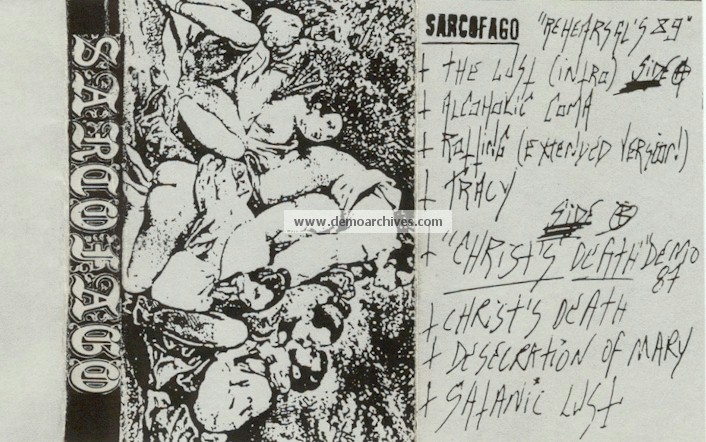 SARCOFAGO
SARCOFAGO "REHEARSAL'S 89"
† THE LUST (intRO) SiDE A
† ALCOHOLIC COMA
† ROTTING (EXTENDED VERSION)
† TRACY
www.demoarchives.com
SiDE B
† "CHRiST'S DEATH" DEMO
87
† CHRiST'S DEATH
† DESECRATiON OF MARY
† SATANiC LUST